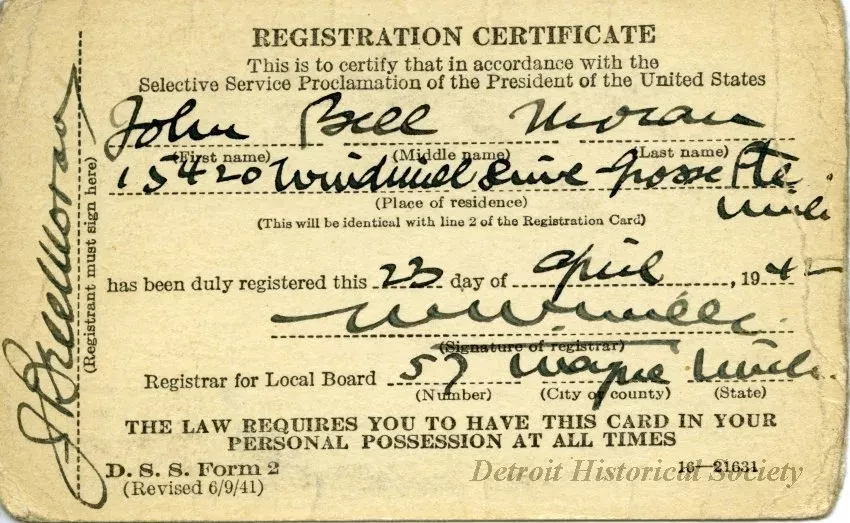 REGISTRATION CERTIFICATE
This is to certify that in accordance with the
Selective Service Proclamation of the President of the United States
John Bell Moran
(First name) (Middle name) (Last name)
15420 Windmill Drive Grosse Pte.
Mich
(Place of residence)
(This will be identical with line 2 of the Registration Card)
has been duly registered this 23 day of April, 1942
(Signature of registrar)
Registrar for Local Board 57 Wayne Mich.
(Number) (City or county) (State)
THE LAW REQUIRES YOU TO HAVE THIS CARD IN YOUR
PERSONAL POSSESSION AT ALL TIMES
D. S. S. Form 2
(Revised 6/9/41)
16—21631
Detroit Historical Society
J Bell Moran
(Registrant must sign here)